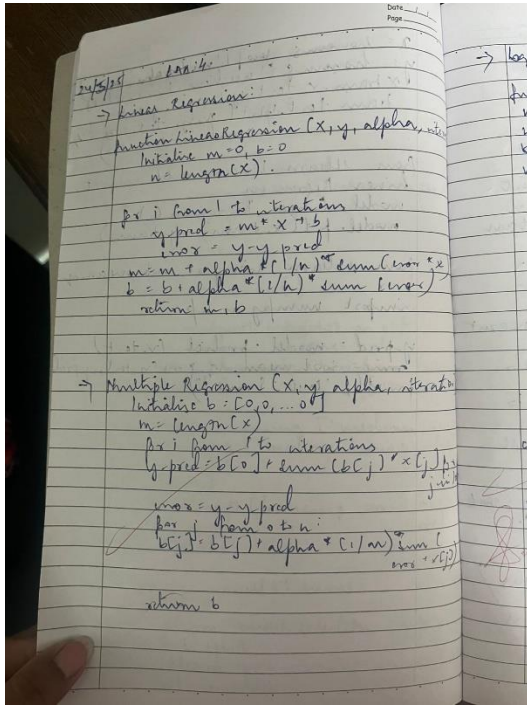 Date
Page
24/3/25 LAB: 4.
→ Linear Regression:
function LinearRegression (X, y, alpha, iter
Initialise m=0, b=0
n = length(X).
for i from 1 to iterations
y-pred = m * X + b
error = y - y pred
m = m + alpha * (1/n) * sum (error * x
b = b + alpha * (1/n) * sum (error)
return m, b
→ Multiple Regression (X, y, alpha, iteration
Initialise b = [0, 0, ... 0]
m = length(X)
for i from 1 to iterations
y-pred = b[0] + sum (b[j] * x[j] for
error = y - y pred
for j from 0 to n:
b[j] = b[j] + alpha * (1/m) * sum (
error * x[j])
return b
→ Log